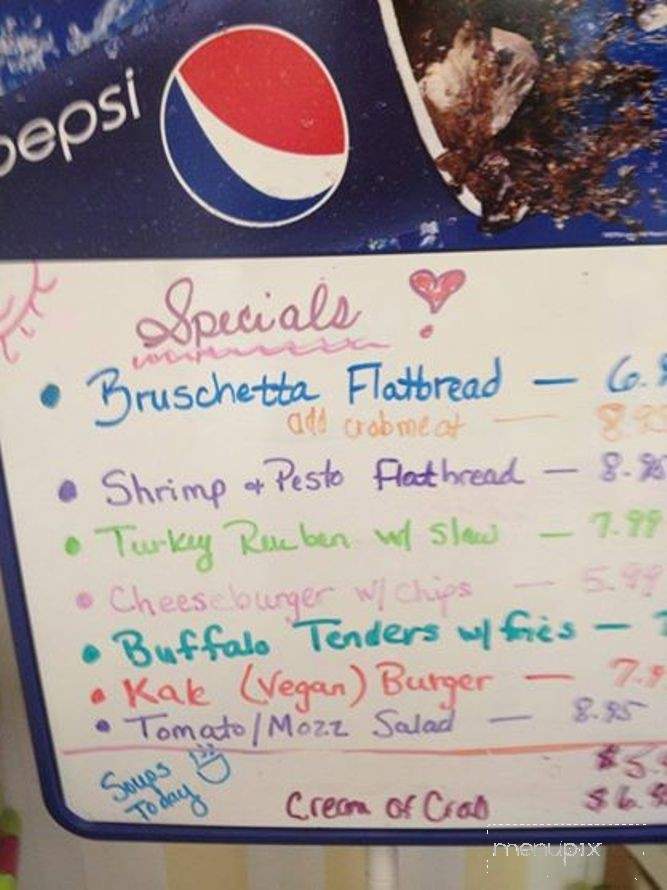 pepsi
Specials
• Bruschetta Flatbread — 6.
add crabmeat — 8.95
• Shrimp & Pesto Flatbread — 8.95
• Turkey Reuben w/ Slaw — 7.99
• Cheeseburger w/ chips — 5.99
• Buffalo Tenders w/ fries —
• Kale (Vegan) Burger — 7.9
• Tomato/Mozz Salad — 8.95
Soups
Today
$5.
Cream of Crab $6.
menupix